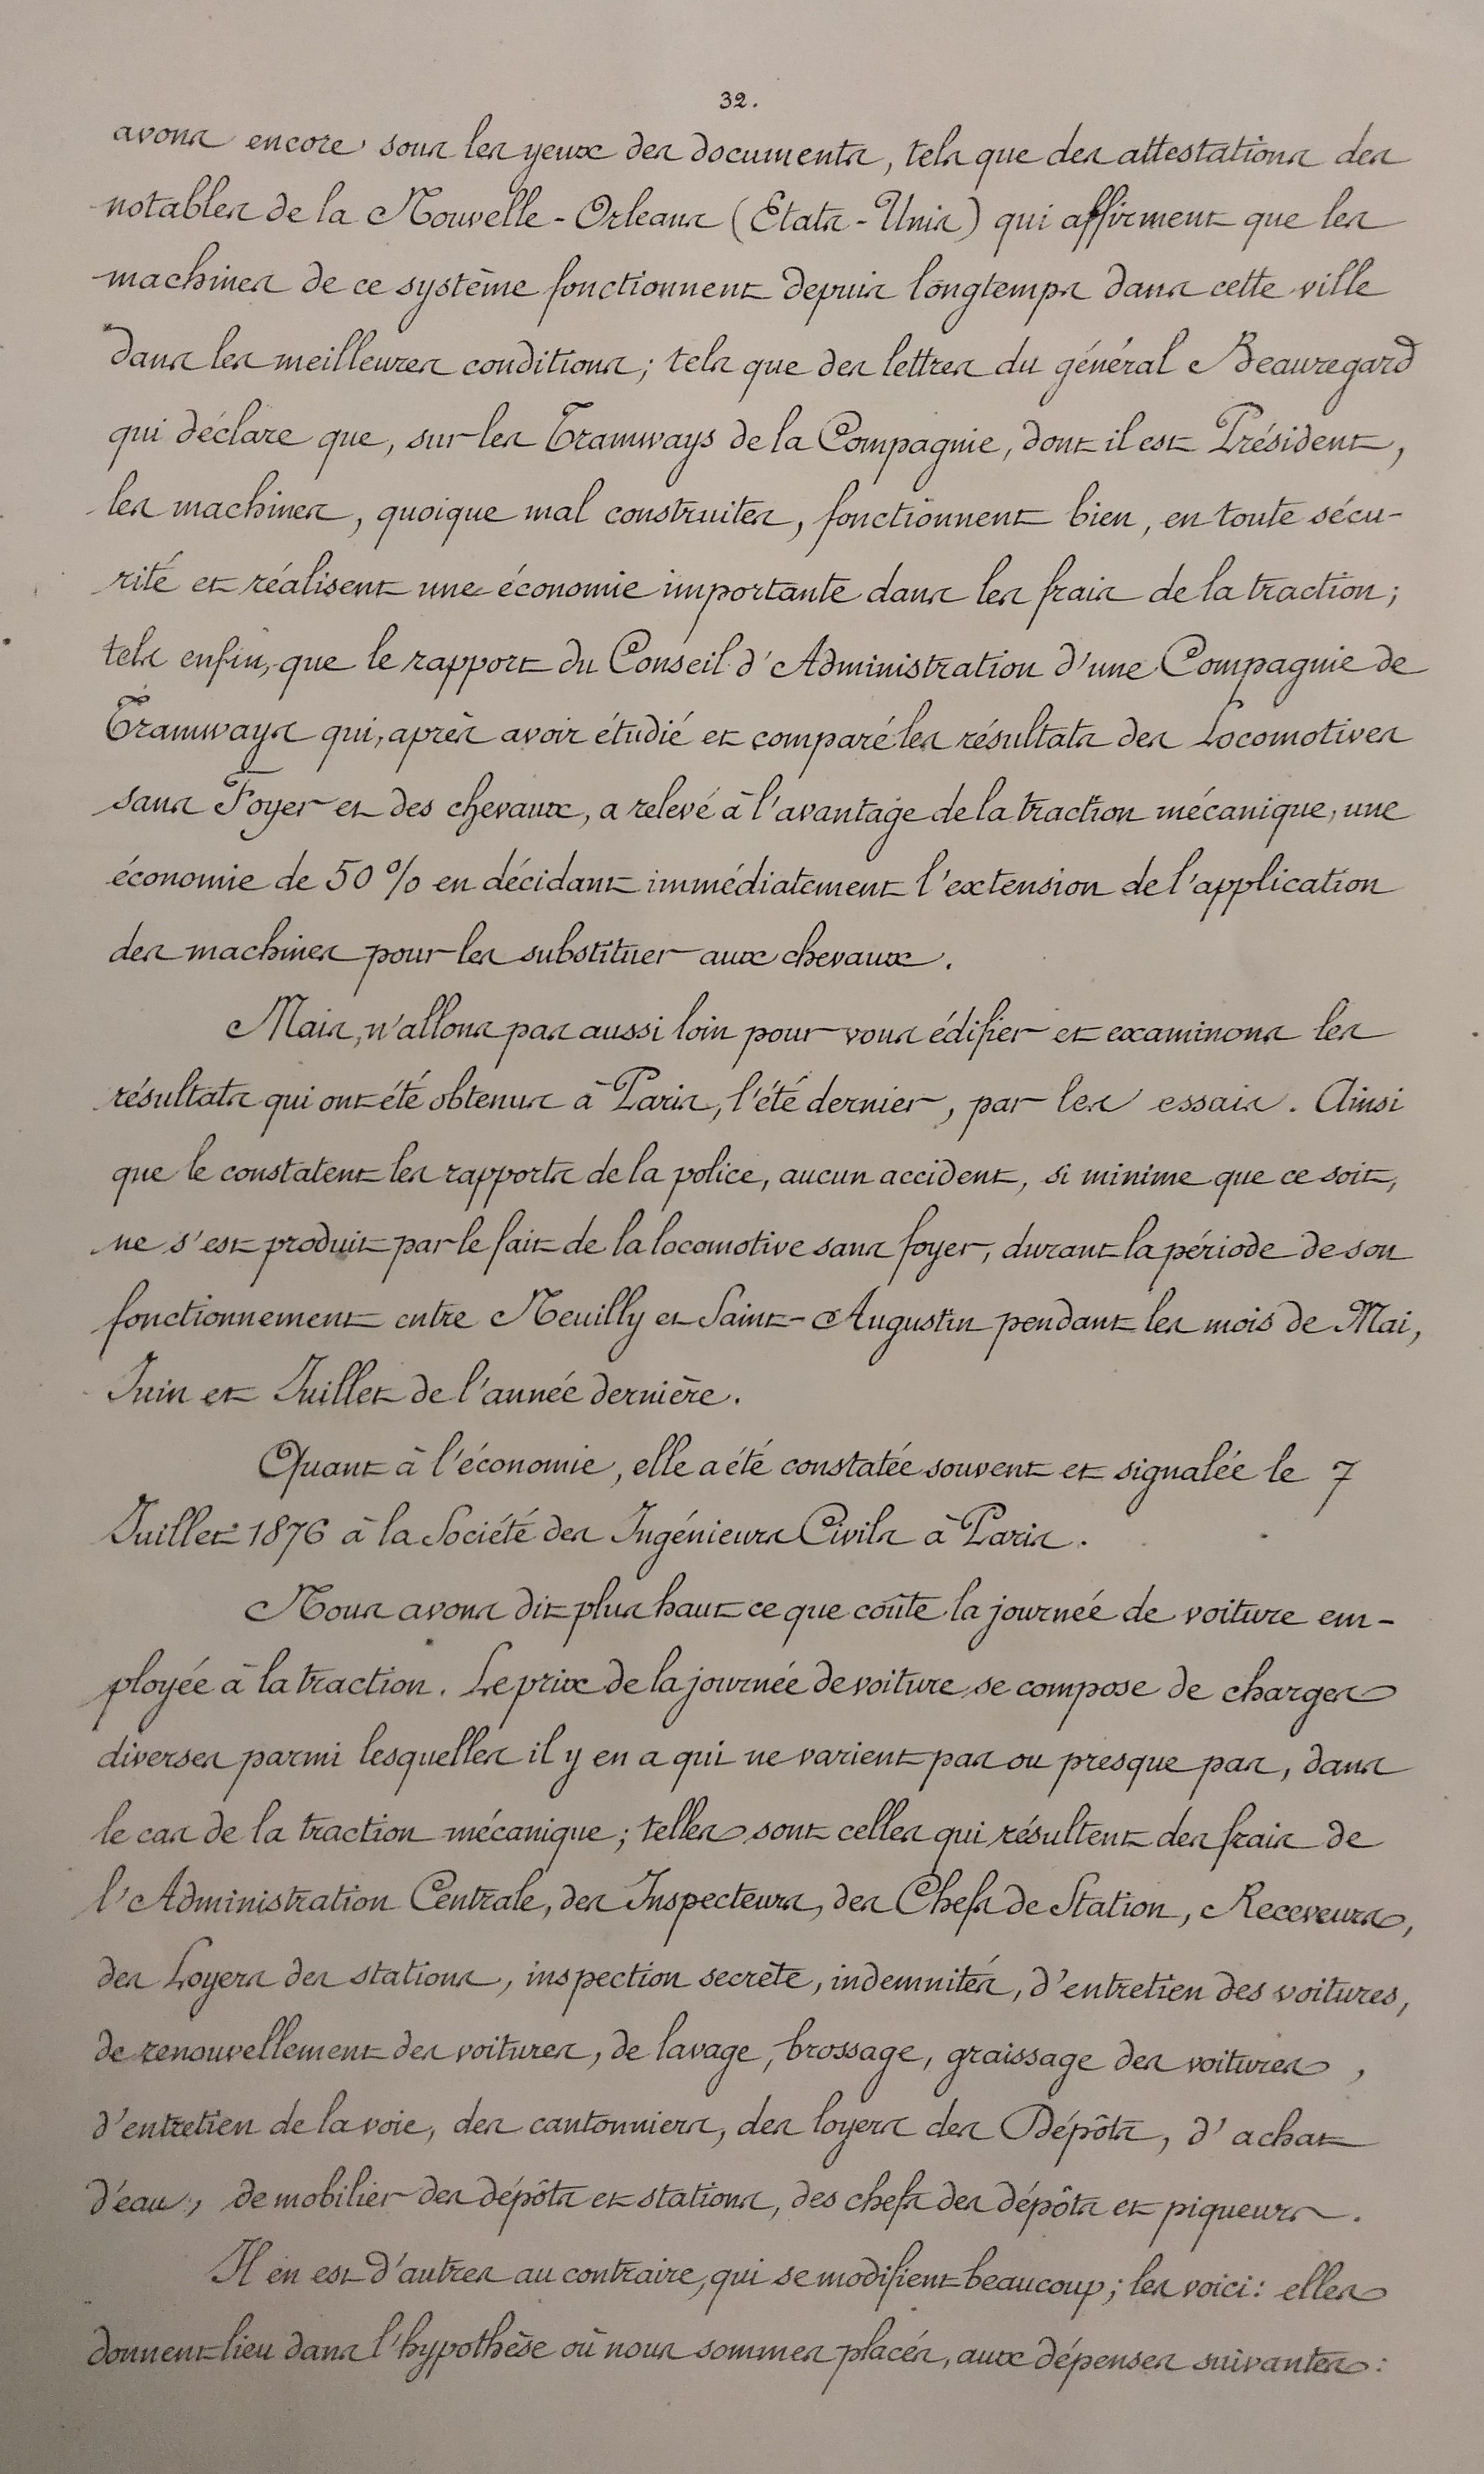 32.
avons encore sous les yeux des documents, tels que des attestations des
notables de la Nouvelle-Orleans (Etats-Unis) qui affirment que les
machines de ce système fonctionnent depuis longtemps dans cette ville
dans les meilleures conditions; tels que des lettres du général Beauregard
qui déclare que, sur les Tramways de la Compagnie, dont il est Président,
les machines, quoique mal construites, fonctionnent bien, en toute sécu-
rité et réalisent une économie importante dans les frais de la traction;
tels enfin, que le rapport du Conseil d'Administration d'une Compagnie de
Tramways qui, après avoir étudié et comparé les résultats des Locomotives
sans Foyer et des chevaux, a relevé à l'avantage de la traction mécanique, une
économie de 50 % en décidant immédiatement l'extension de l'application
des machines pour les substituer aux chevaux.
Mais, n'allons pas aussi loin pour vous édifier et examinons les
résultats qui ont été obtenus à Paris, l'été dernier, par les essais. Ainsi
que le constatent les rapports de la police, aucun accident, si minime que ce soit,
ne s'est produit par le fait de la locomotive sans foyer, durant la période de son
fonctionnement entre Neuilly et Saint-Augustin pendant les mois de Mai,
Juin et Juillet de l'année dernière.
Quant à l'économie, elle a été constatée souvent et signalée le 7
Juillet 1876 à la Société des Ingénieurs Civils à Paris.
Nous avons dit plus haut ce que coûte la journée de voiture em-
ployée à la traction. Le prix de la journée de voiture se compose de charges
diverses parmi lesquelles il y en a qui ne varient pas ou presque pas, dans
le cas de la traction mécanique; telles sont celles qui résultent des frais de
l'Administration Centrale, des Inspecteurs, des Chefs de Station, Receveurs,
des Loyers des stations, inspection secrète, indemnités, d'entretien des voitures,
de renouvellement des voitures, de lavage, brossage, graissage des voitures,
d'entretien de la voie, des cantonniers, des loyers des Dépôts, d'achat
d'eau, de mobilier des dépôts et stations, des chefs des dépôts et piqueurs.
Il en est d'autres au contraire, qui se modifient beaucoup; les voici: elles
donnent lieu dans l'hypothèse où nous sommes placés, aux dépenses suivantes: